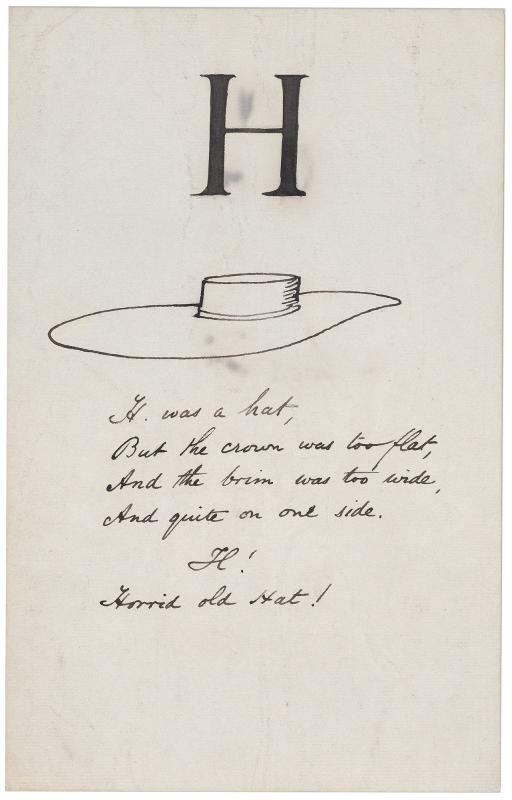 H
H. was a hat,
But the crown was too flat,
And the brim was too wide,
And quite on one side.
H!
Horrid old Hat!